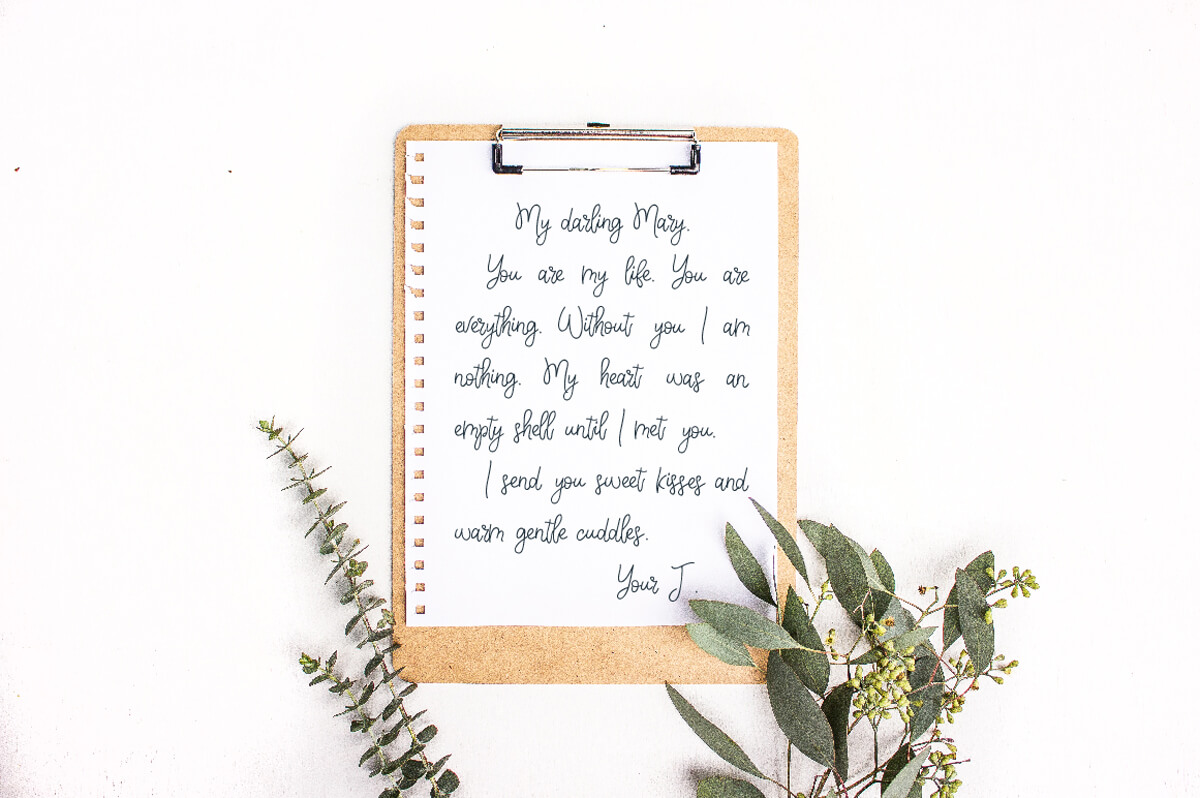 My darling Mary.
You are my life. You are
everything. Without you I am
nothing. My heart was an
empty shell until I met you.
I send you sweet kisses and
warm gentle cuddles.
Your J.